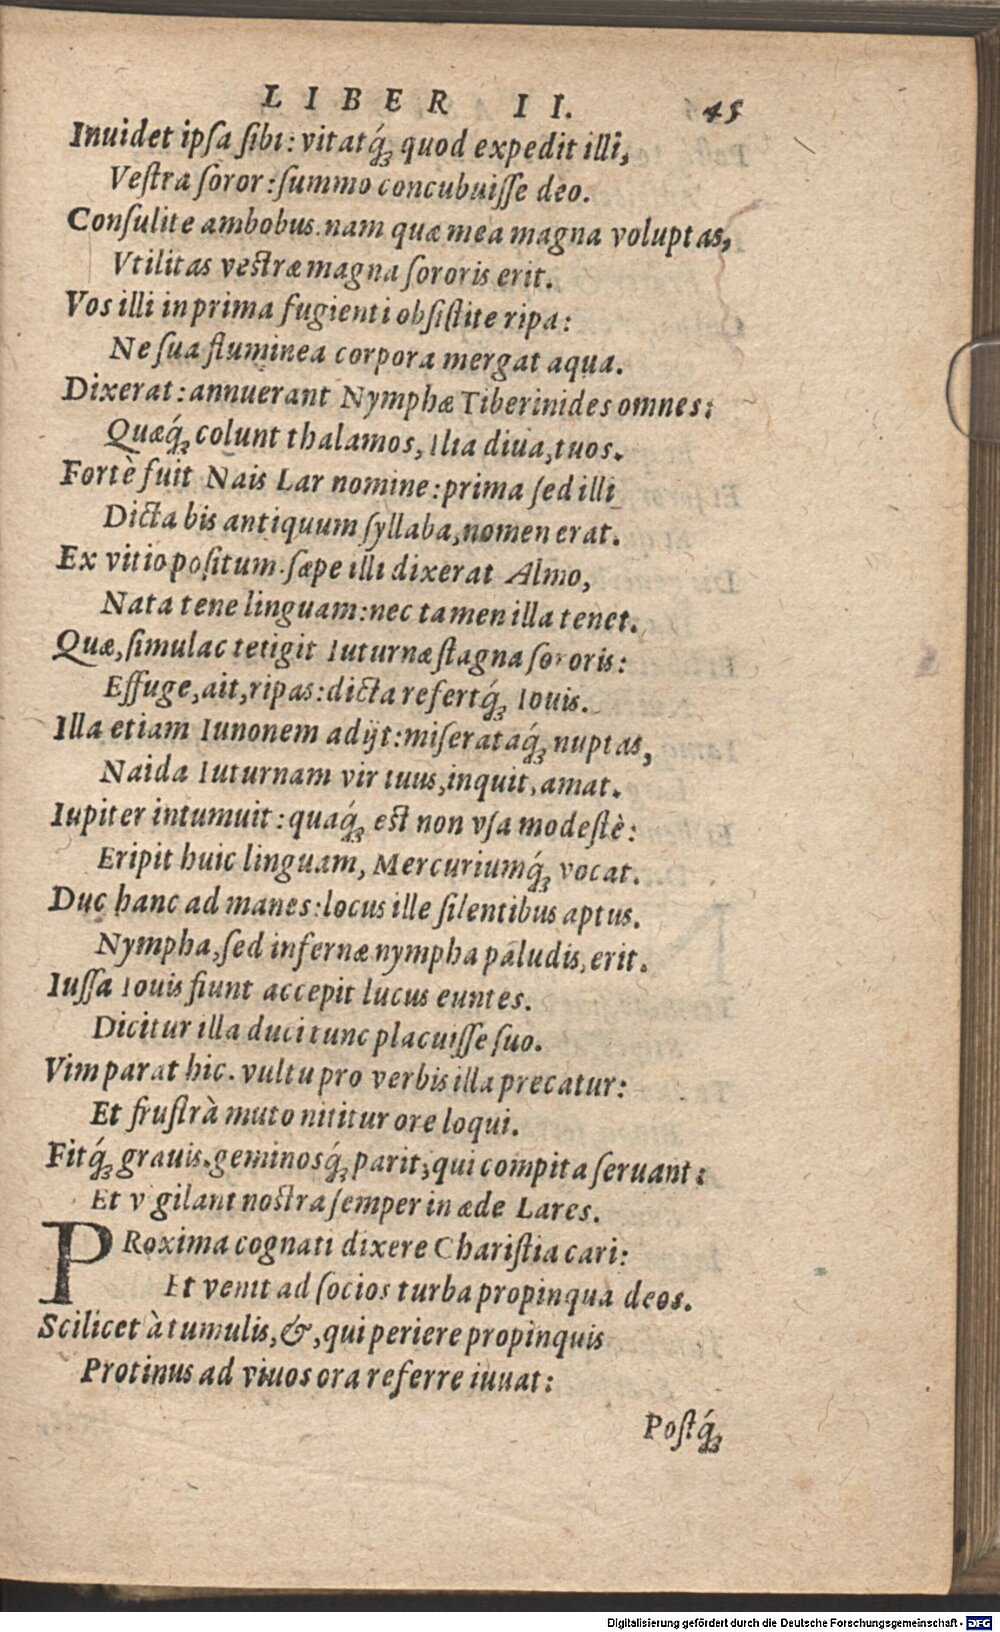 LIBER II. 45
Inuidet ipsa sibi: vitatq́; quod expedit illi,
Vestra soror: summo concubuisse deo.
Consulite ambobus. nam quæ mea magna voluptas,
Vtilitas vestræ magna sororis erit.
Vos illi in prima fugienti obsistite ripa:
Ne sua fluminea corpora mergat aqua.
Dixerat: annuerant Nymphæ Tiberinides omnes:
Quæq́; colunt thalamos, Ilia diua, tuos.
Fortè fuit Nais Lar nomine: prima sed illi
Dicta bis antiquum syllaba, nomen erat.
Ex vitio positum. sæpe illi dixerat Almo,
Nata tene linguam: nec tamen illa tenet.
Quæ, simulac tetigit Iuturnæ stagna sororis:
Effuge, ait, ripas: dicta refertq́; Iouis.
Illa etiam Iunonem adijt: miserataq́; nuptas,
Naida Iuturnam vir tuus, inquit, amat.
Iupiter intumuit: quaq́; est non vsa modestè:
Eripit huic linguam, Mercuriumq́; vocat.
Duc hanc ad manes: locus ille silentibus aptus.
Nympha, sed infernæ nympha paludis, erit.
Iussa Iouis fiunt accepit lucus euntes.
Dicitur illa duci tunc placuisse suo.
Vim parat hic. vultu pro verbis illa precatur:
Et frustrà muto nititur ore loqui.
Fitq́; grauis. geminosq́; parit; qui compita seruant:
Et v gilant nostra semper in æde Lares.
PRoxima cognati dixere Charistia cari:
Et venit ad socios turba propinqua deos.
Scilicet à tumulis, &, qui periere propinquis
Protinus ad viuos ora referre iuuat:
Postq́;
Digitalisierung gefördert durch die Deutsche Forschungsgemeinschaft - DFG